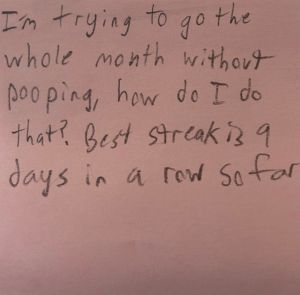 I'm trying to go the
whole month without
pooping, how do I do
that? Best streak is 9
days in a row so far